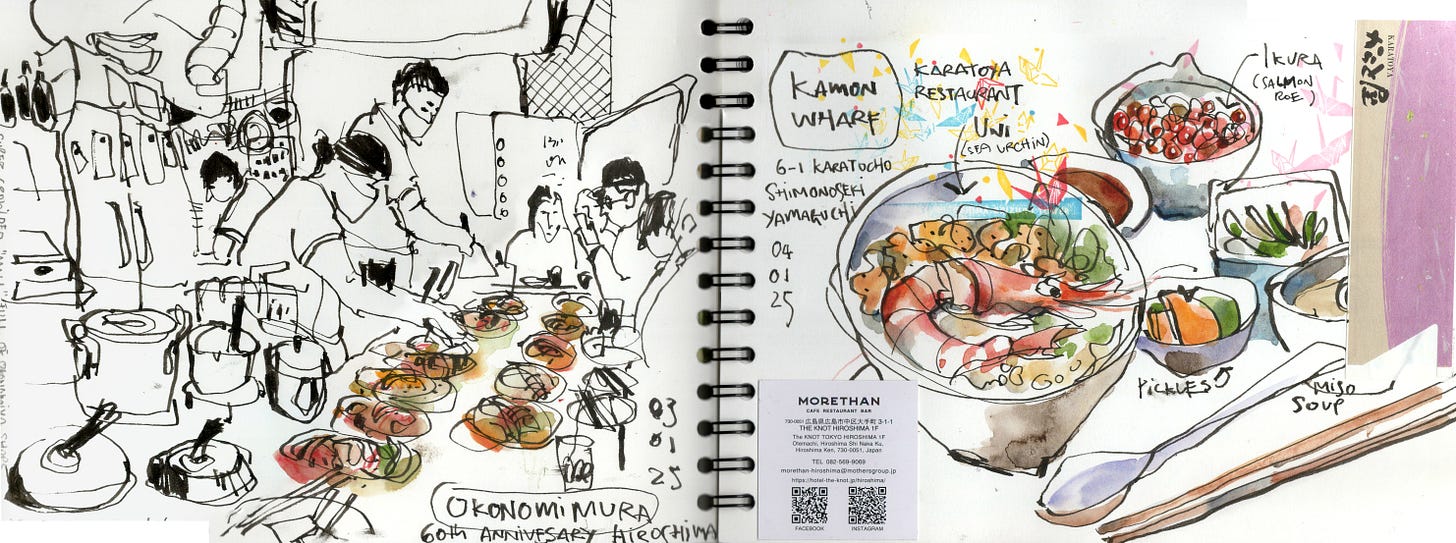 03
01
25
OKONOMIMURA
60th ANNIVESARY HIROSHIMA
KAMON
WHARF
KARATOYA
RESTAURANT
UNI
(SEA URCHIN)
IKURA
(SALMON
ROE)
6-1 KARATOCHO
SHIMONOSEKI
YAMAGUCHI
04
01
25
PICKLES
MISO
SOUP
KARATOYA
MORETHAN
CAFE RESTAURANT BAR
730-0051 広島県広島市中区大手町 3-1-1
THE KNOT HIROSHIMA 1F
The KNOT TOKYO HIROSHIMA 1F
Otemachi, Hiroshima Shi Naka Ku,
Hiroshima Ken, 730-0051, Japan
TEL 082-569-9069
morethan-hiroshima@mothersgroup.jp
https://hotel-the-knot.jp/hiroshima/
FACEBOOK
INSTAGRAM